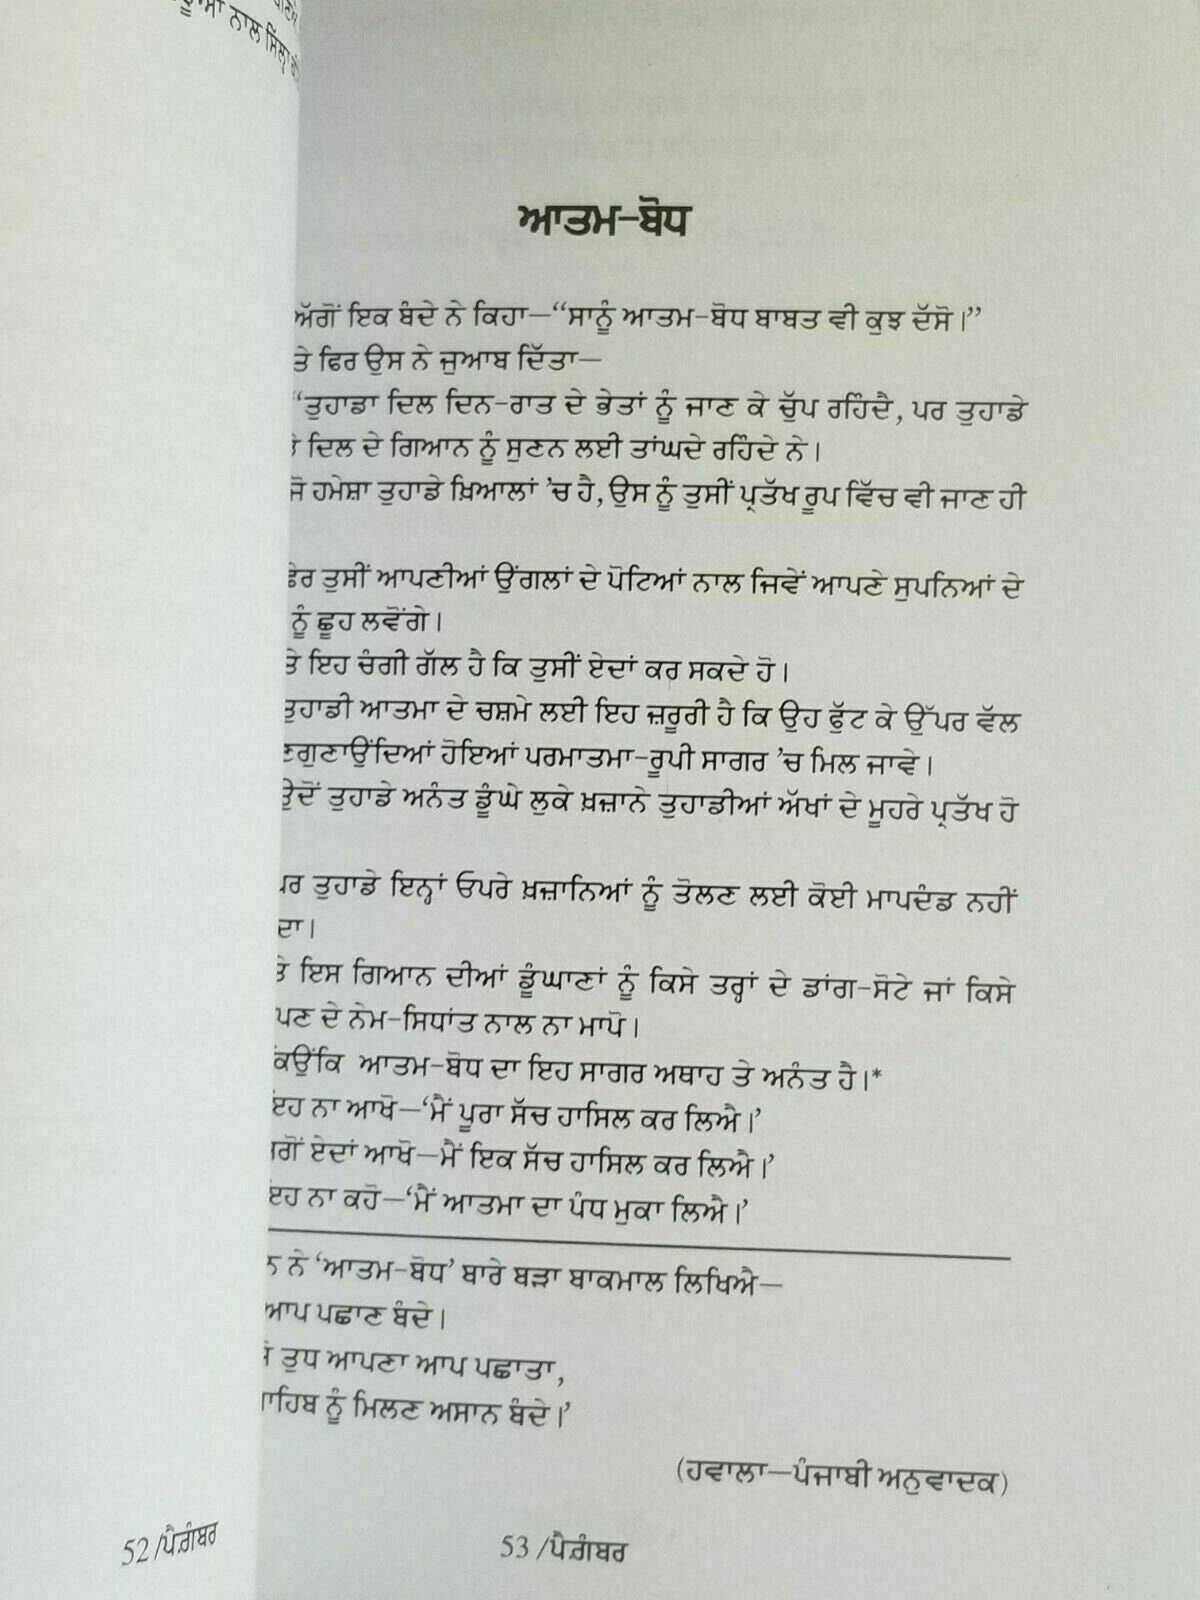 ਨਾਲ
ਆਤਮ-ਬੋਧ
ਅੱਗੋਂ ਇਕ ਬੰਦੇ ਨੇ ਕਿਹਾ—“ਸਾਨੂੰ ਆਤਮ-ਬੋਧ ਬਾਬਤ ਵੀ ਕੁਝ ਦੱਸੋ।”
ਤੇ ਫਿਰ ਉਸ ਨੇ ਜੁਆਬ ਦਿੱਤਾ—
“ਤੁਹਾਡਾ ਦਿਲ ਦਿਨ-ਰਾਤ ਦੇ ਭੇਤਾਂ ਨੂੰ ਜਾਣ ਕੇ ਚੁੱਪ ਰਹਿੰਦੈ, ਪਰ ਤੁਹਾਡੇ
ਦਿਲ ਦੇ ਗਿਆਨ ਨੂੰ ਸੁਣਨ ਲਈ ਤਾਂਘਦੇ ਰਹਿੰਦੇ ਨੇ।
ਜੋ ਹਮੇਸ਼ਾ ਤੁਹਾਡੇ ਖ਼ਿਆਲਾਂ ’ਚ ਹੈ, ਉਸ ਨੂੰ ਤੁਸੀਂ ਪ੍ਰਤੱਖ ਰੂਪ ਵਿੱਚ ਵੀ ਜਾਣ ਹੀ
ਫੇਰ ਤੁਸੀਂ ਆਪਣੀਆਂ ਉਂਗਲਾਂ ਦੇ ਪੋਟਿਆਂ ਨਾਲ ਜਿਵੇਂ ਆਪਣੇ ਸੁਪਨਿਆਂ ਦੇ
ਨੂੰ ਛੂਹ ਲਵੋਂਗੇ।
ਤੇ ਇਹ ਚੰਗੀ ਗੱਲ ਹੈ ਕਿ ਤੁਸੀਂ ਏਦਾਂ ਕਰ ਸਕਦੇ ਹੋ।
ਤੁਹਾਡੀ ਆਤਮਾ ਦੇ ਚਸ਼ਮੇ ਲਈ ਇਹ ਜ਼ਰੂਰੀ ਹੈ ਕਿ ਉਹ ਫੁੱਟ ਕੇ ਉੱਪਰ ਵੱਲ
ਣਗੁਣਾਉਂਦਿਆਂ ਹੋਇਆਂ ਪਰਮਾਤਮਾ-ਰੂਪੀ ਸਾਗਰ ’ਚ ਮਿਲ ਜਾਵੇ।
ਉਦੋਂ ਤੁਹਾਡੇ ਅਨੰਤ ਡੂੰਘੇ ਲੁਕੇ ਖ਼ਜ਼ਾਨੇ ਤੁਹਾਡੀਆਂ ਅੱਖਾਂ ਦੇ ਮੂਹਰੇ ਪ੍ਰਤੱਖ ਹੋ
ਪਰ ਤੁਹਾਡੇ ਇਨ੍ਹਾਂ ਓਪਰੇ ਖ਼ਜ਼ਾਨਿਆਂ ਨੂੰ ਤੋਲਣ ਲਈ ਕੋਈ ਮਾਪਦੰਡ ਨਹੀਂ
ਦਾ।
ਤੇ ਇਸ ਗਿਆਨ ਦੀਆਂ ਡੂੰਘਾਣਾਂ ਨੂੰ ਕਿਸੇ ਤਰ੍ਹਾਂ ਦੇ ਡਾਂਗ-ਸੋਟੇ ਜਾਂ ਕਿਸੇ
ਪਣ ਦੇ ਨੇਮ-ਸਿਧਾਂਤ ਨਾਲ ਨਾ ਮਾਪੋ।
ਕਿਉਂਕਿ ਆਤਮ-ਬੋਧ ਦਾ ਇਹ ਸਾਗਰ ਅਥਾਹ ਤੇ ਅਨੰਤ ਹੈ।*
ਇਹ ਨਾ ਆਖੋ—‘ਮੈਂ ਪੂਰਾ ਸੱਚ ਹਾਸਿਲ ਕਰ ਲਿਐ।’
ਗੋਂ ਏਦਾਂ ਆਖੋ—ਮੈਂ ਇਕ ਸੱਚ ਹਾਸਿਲ ਕਰ ਲਿਐ।’
ਇਹ ਨਾ ਕਹੋ—‘ਮੈਂ ਆਤਮਾ ਦਾ ਪੰਧ ਮੁਕਾ ਲਿਐ।’
ਨ ਨੇ ‘ਆਤਮ-ਬੋਧ’ ਬਾਰੇ ਬੜਾ ਬਾਕਮਾਲ ਲਿਖਿਐ—
ਆਪ ਪਛਾਣ ਬੰਦੇ।
ਤੁਧ ਆਪਣਾ ਆਪ ਪਛਾਤਾ,
ਾਹਿਬ ਨੂੰ ਮਿਲਣ ਅਸਾਨ ਬੰਦੇ।’
(ਹਵਾਲਾ—ਪੰਜਾਬੀ ਅਨੁਵਾਦਕ)
52/ਪੈਗ਼ੰਬਰ
53 /ਪੈਗ਼ੰਬਰ